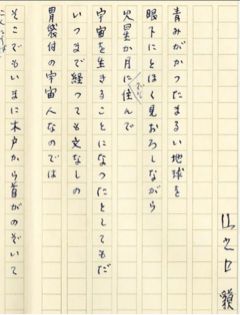 山之口貘
青みがかつたまるい地球を
眼下にとほく見おろしながら
火星か月にでも住んで
宇宙を生きることになつたとしてもだ
いつまで経つても文なしの
胃袋付の宇宙人なのでは
そこでもいまに木戸から首がのぞいて